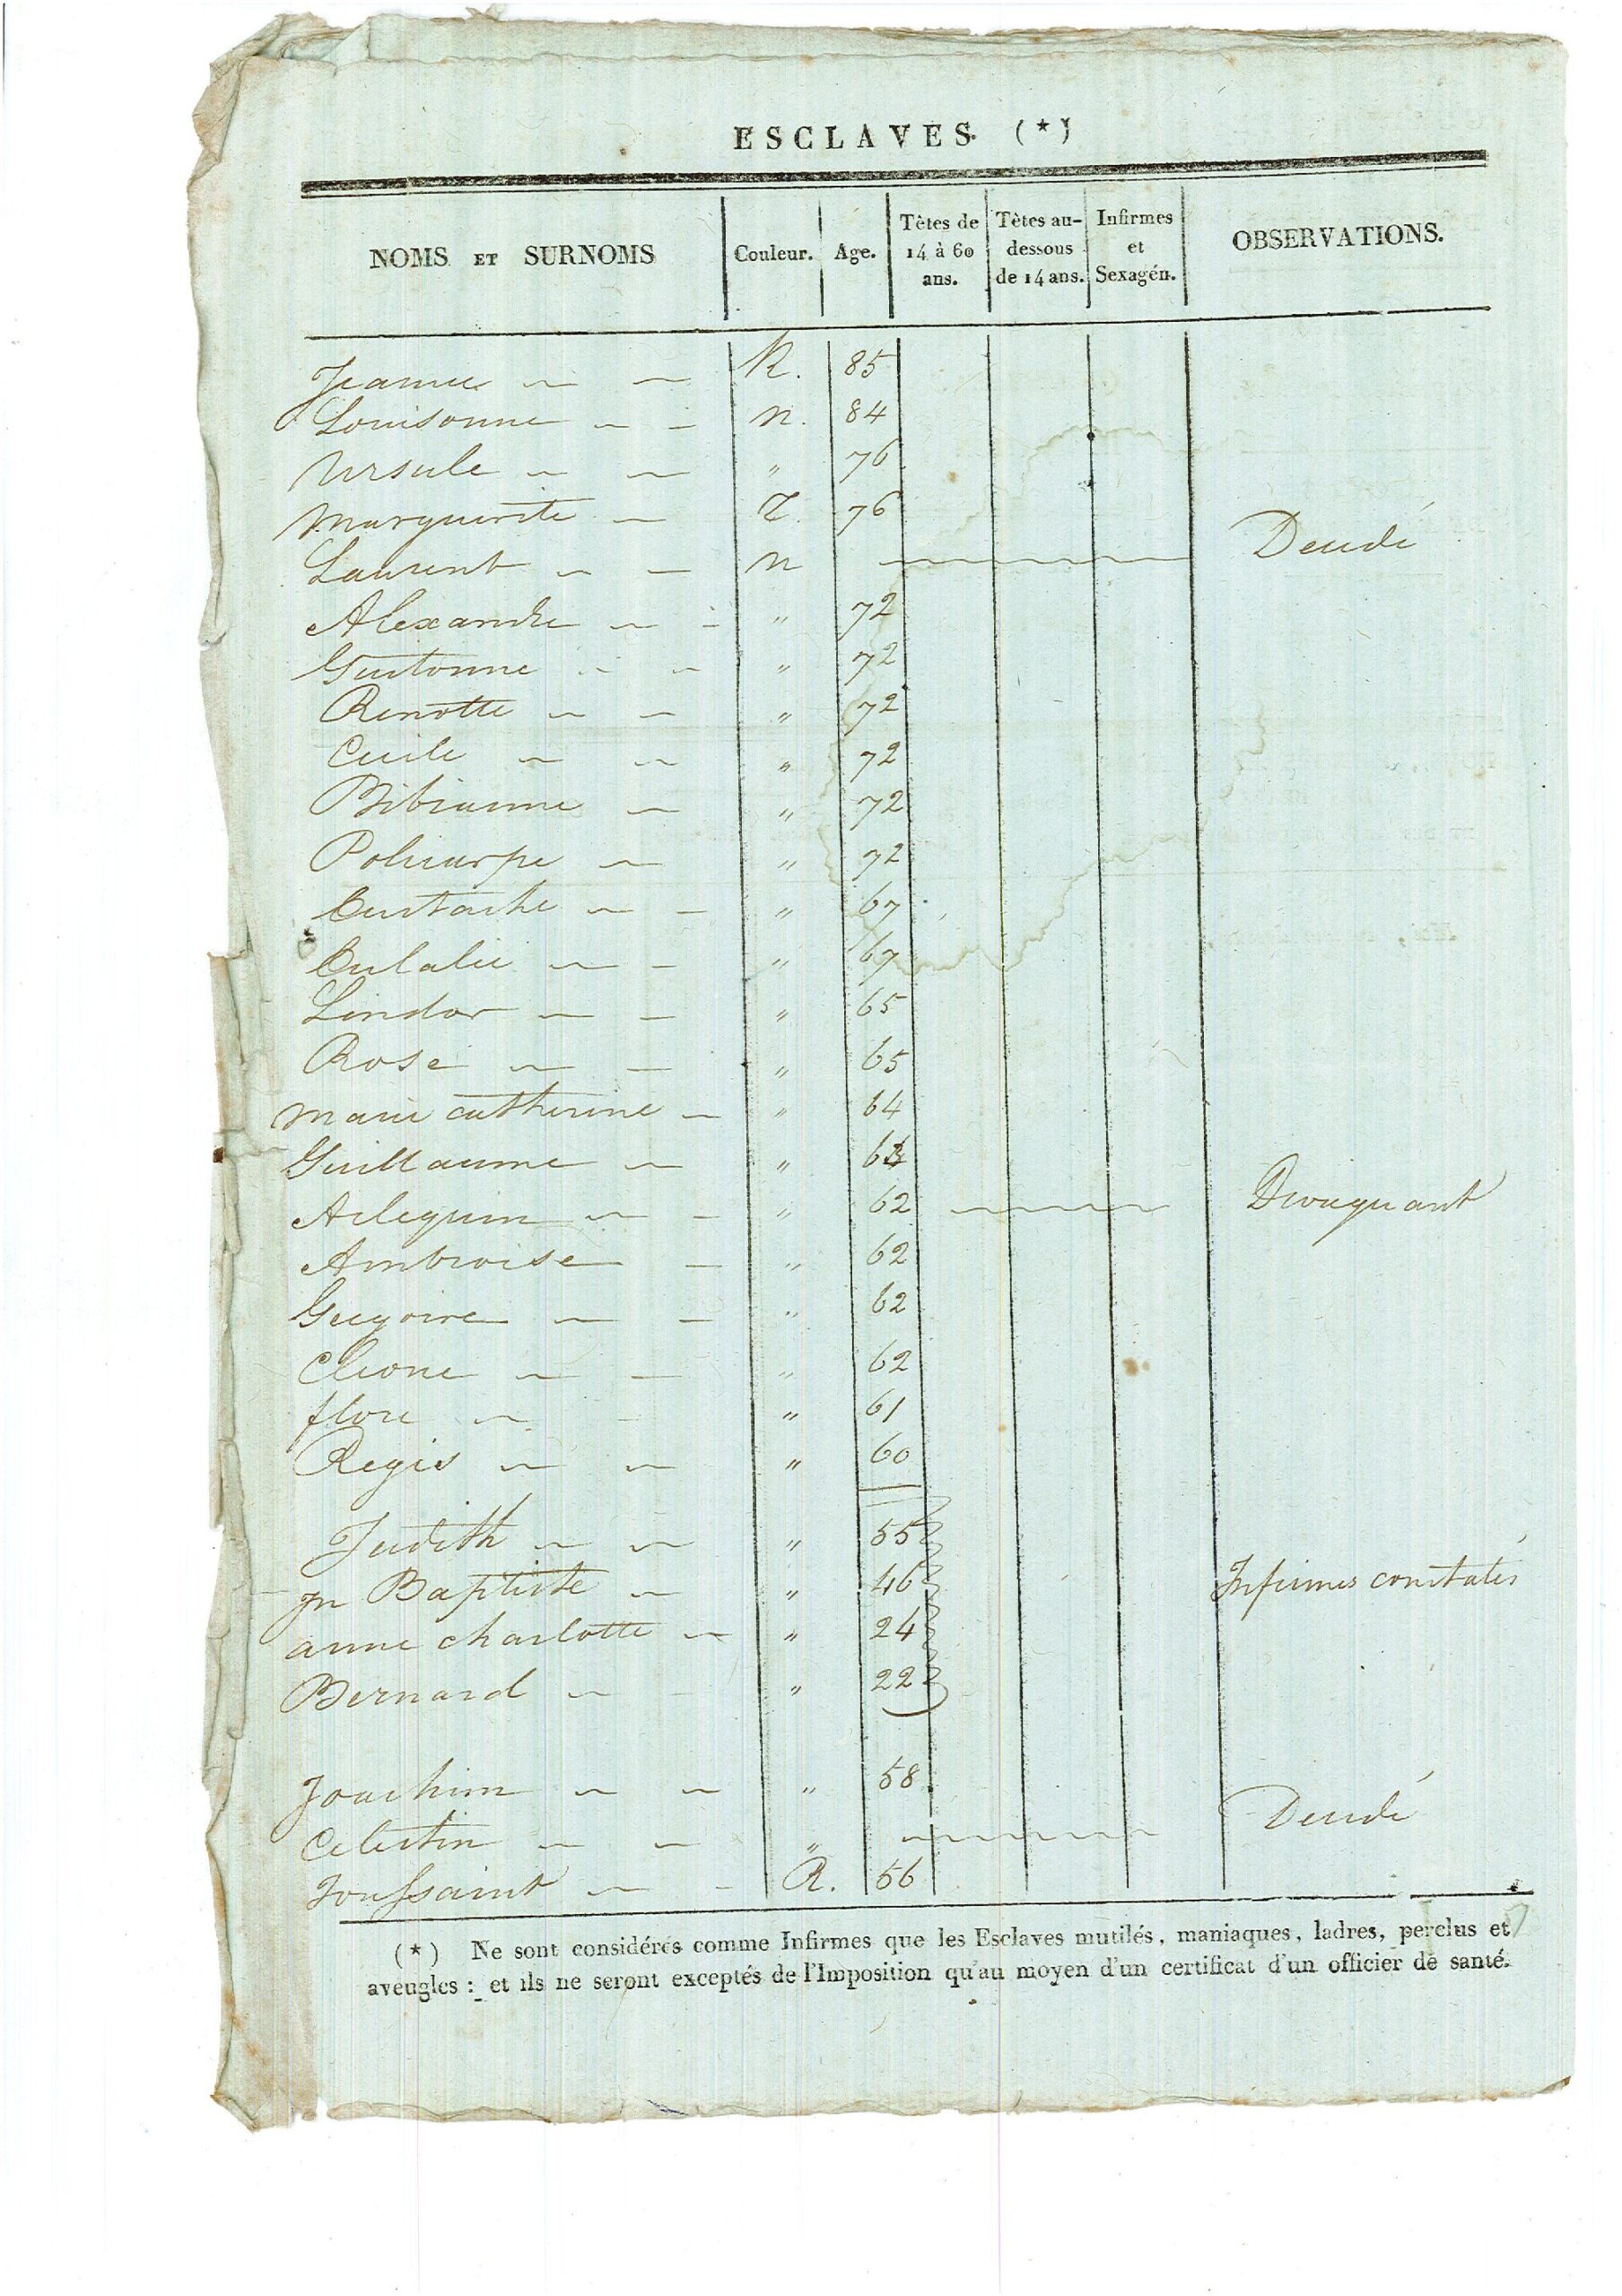 ESCLAVES. (*)
NOMS ET SURNOMS Couleur. Age. Têtes de 14 à 60 ans. Têtes au-dessous de 14 ans. Infirmes et Sexagén. OBSERVATIONS.
Jeanne R. 85
Louisonne n. 84
Ursule " 76
Marguerite 76
Laurent n Décédé
Alexandre " 72
Gustonne " 72
Renotte " 72
Cecile " 72
Bibianne " 72
Policarpe " 72
Eustache " 67
Eulalie " 67
Lindor " 65
Rose " 65
Marie catherine " 64
Guillaume " 63
Arlequin " 62
Ambroise " 62
Gregoire " 62
Cleone " 62
flore " 61
Regis " 60
Judith " 55
Jn Baptiste " 46 Infirmes constatés
anne charlotte " 24
Bernard " 22
Joachim " 58
Celestin " Décédé
Toussaint R. 56
(*) Ne sont considérés comme Infirmes que les Esclaves mutilés, maniaques, ladres, perclus et
aveugles : et ils ne seront exceptés de l'Imposition qu'au moyen d'un certificat d'un officier de santé.